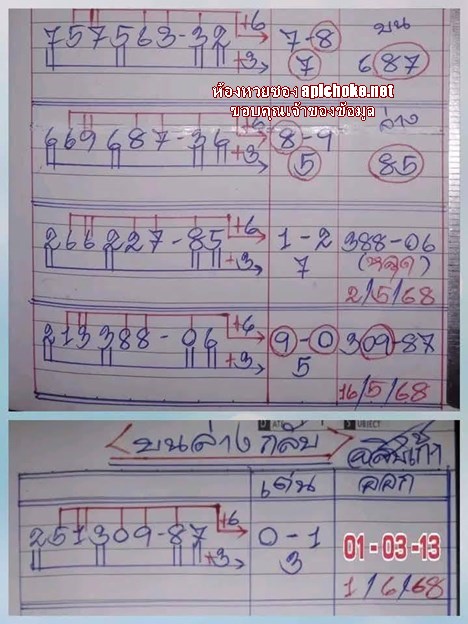 +6
757563-32 7-8 บน
+3 7 687
ห้องหวยซอง apichoke.net
ขอบคุณเจ้าของข้อมูล
+6 ล่าง
669687-36 8-9
+3 5 85
+6
266227-85 1-2 388-06
+3 7 (หลุด)
2/5/68
+6
213388-06 9-0 309-87
+3 5
16/5/68
SUBJECT
<บนล่าง กลับ>
เด่น ออก
+6
251309-87 0-1 01-03-13
+3 3
1/6/68